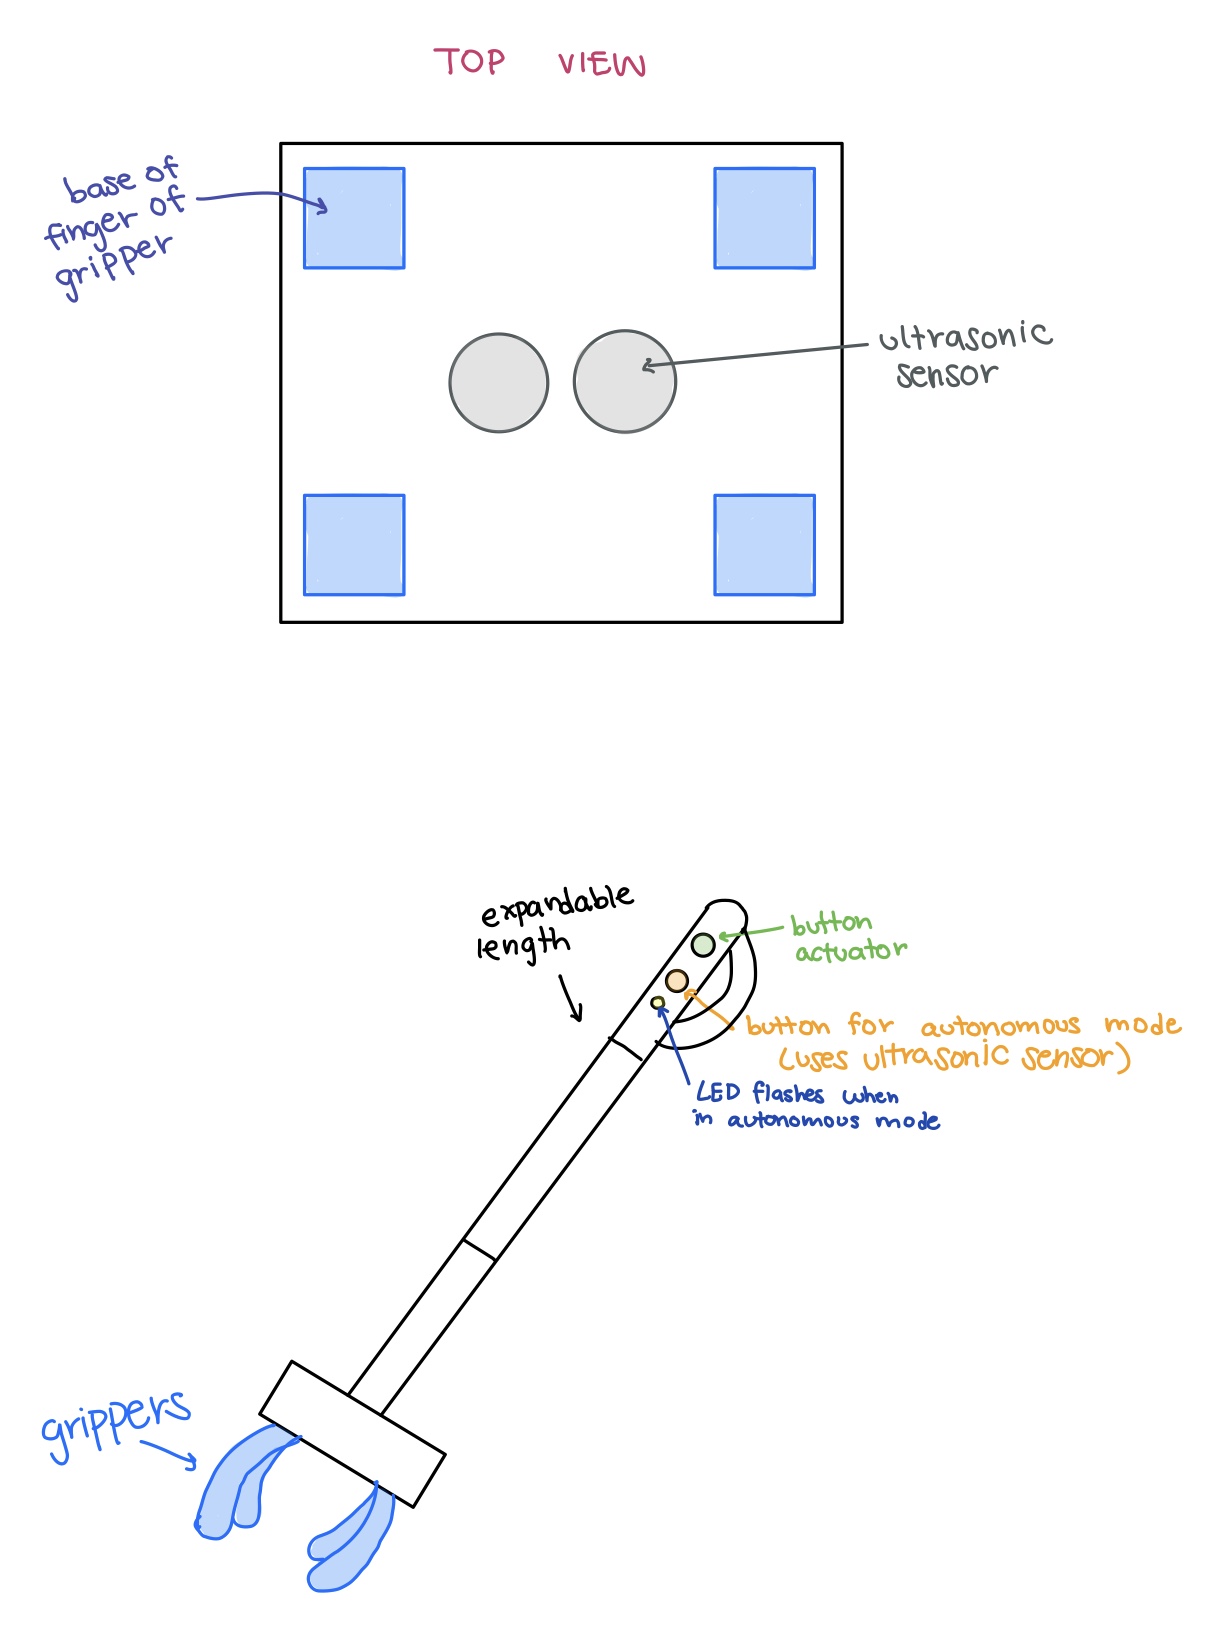 TOP VIEW
base of
finger of
gripper
ultrasonic
sensor
expandable
length
button
actuator
button for autonomous mode
(uses ultrasonic sensor)
LED flashes when
in autonomous mode
grippers